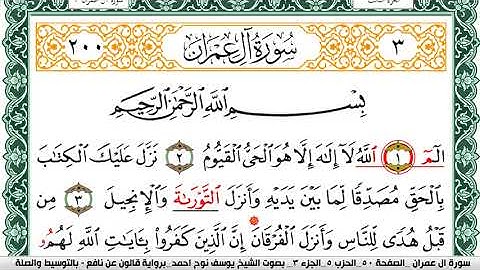 ٢٠٠ سُورَةُ آلِ عِمْرَانَ ٣
بِسْمِ اللَّهِ الرَّحْمَٰنِ الرَّحِيمِ
الٓمٓ ١ اللَّهُ لَا إِلَٰهَ إِلَّا هُوَ الْحَيُّ الْقَيُّومُ ٢ نَزَّلَ عَلَيْكَ الْكِتَابَ
بِالْحَقِّ مُصَدِّقًا لِّمَا بَيْنَ يَدَيْهِ وَأَنزَلَ التَّوْرَىٰةَ وَالْإِنجِيلَ ٣ مِن
قَبْلُ هُدًى لِّلنَّاسِ وَأَنزَلَ الْفُرْقَانَ إِنَّ الَّذِينَ كَفَرُوا بِـَٔايَاتِ اللَّهِ لَهُمُو
سورة آل عمران _الصفحة ٥٠_الحزب ٥_الجزء ٣_ بصوت الشيخ يوسف نوح احمد _برواية قالون عن نافع - بالتوسيط والصلة